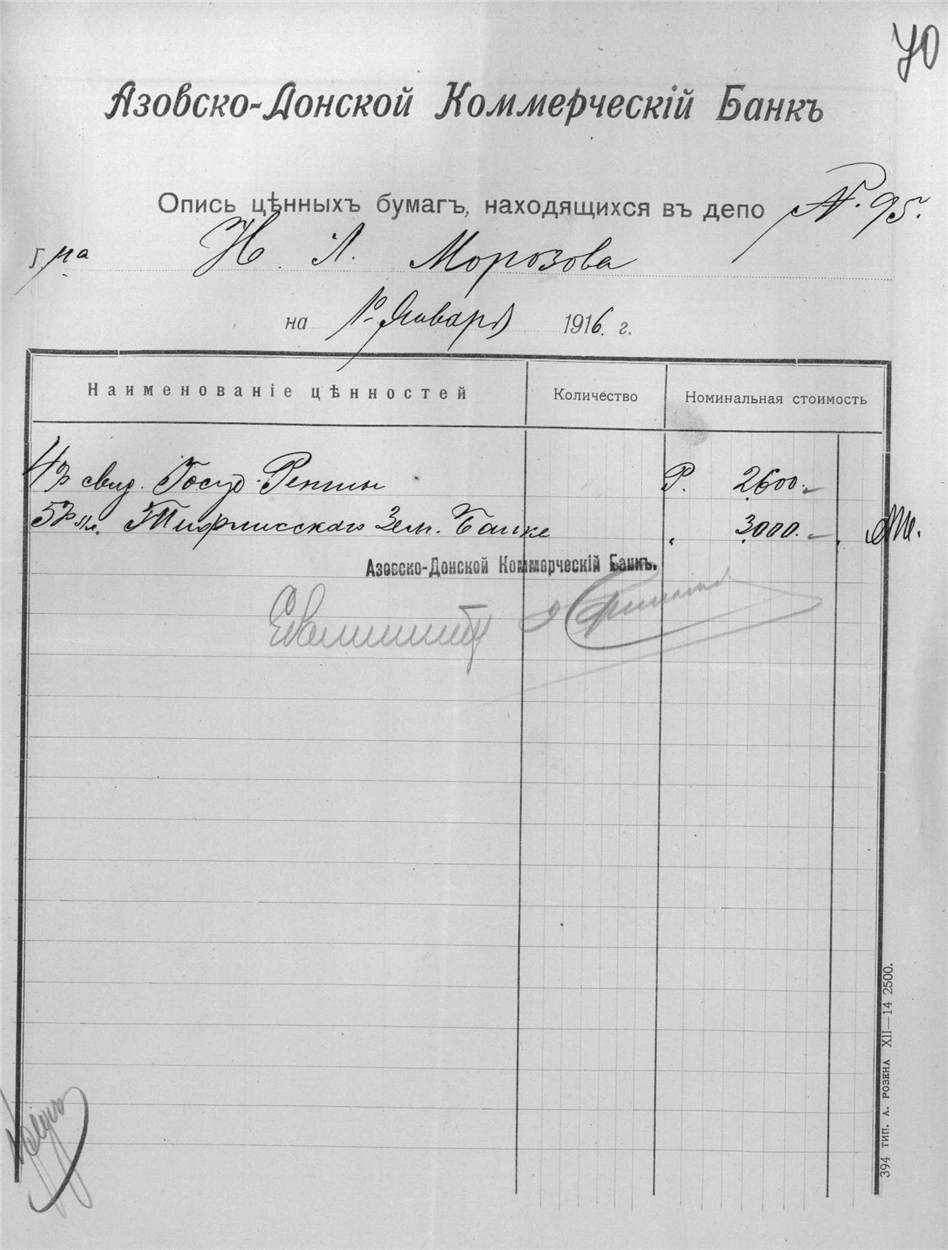 70
Азовско-Донской Коммерческій Банкъ
Опись цѣнныхъ бумагъ, находящихся въ депо № 95.
Г-на Н. А. Морозова
на 1го Января 1916 г.
Наименованіе цѣнностей Количество Номинальная стоимость
4% свид. Госуд. Ренты Р. 2600.-
5% Тифлисскаго Зем. Банка " 3000.-
Азовско-Донской Коммерческій Банкъ.
394 ТИП. А. РОЗЕНА XII—14 2500.